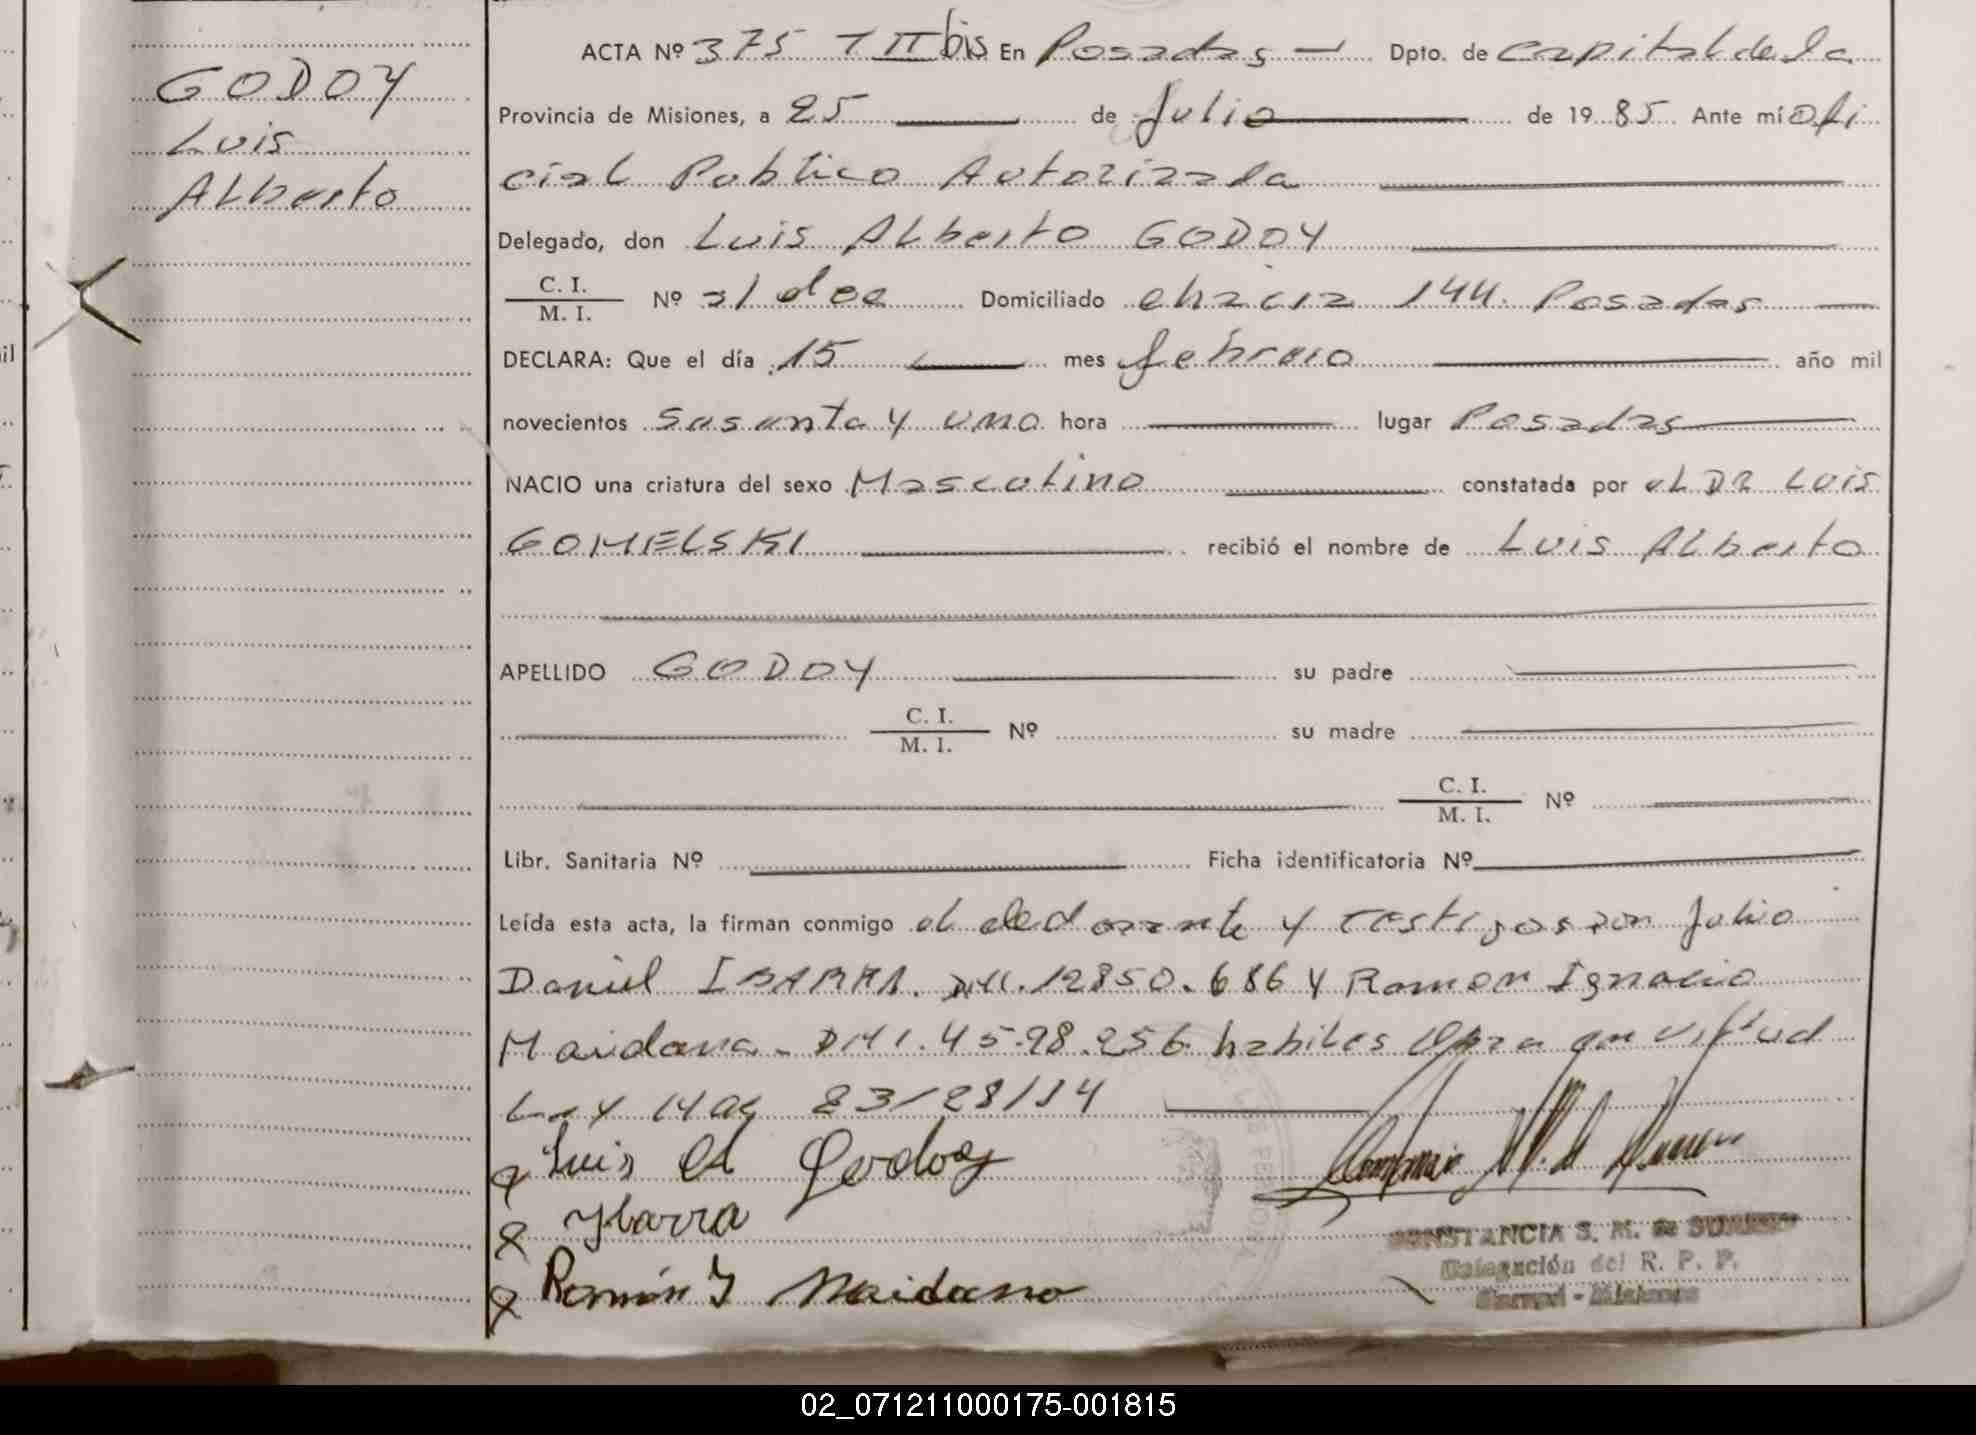 GODOY
Luis
Alberto
ACTA Nº 375 T II bis En Posadas Dpto. de Capital de la
Provincia de Misiones, a 25 de Julio de 1985 Ante mí Ofi
cial Publico Autorizada
Delegado, don Luis Alberto GODOY
C. I.
M. I. Nº Domiciliado 144. Posadas
DECLARA: Que el día 15 mes febrero año mil
novecientos Sesenta y uno hora lugar Posadas
NACIO una criatura del sexo Masculino constatada por el DR Luis
GOMELSKI recibió el nombre de Luis Alberto
APELLIDO GODOY su padre
C. I.
M. I. Nº su madre
C. I.
M. I. Nº
Libr. Sanitaria Nº Ficha identificatoria Nº
Leída esta acta, la firman conmigo el y Testigos son Julio
Daniel IBARRA. 12850.686 y Ramon Ignacio
Maidana habiles virtud
Ley
Luis Al Godoy
Ybarra
Ramón Y Maidana
CONSTANCIA S. M. de
Delegación del R. P. P.
- Misiones
02_071211000175-001815